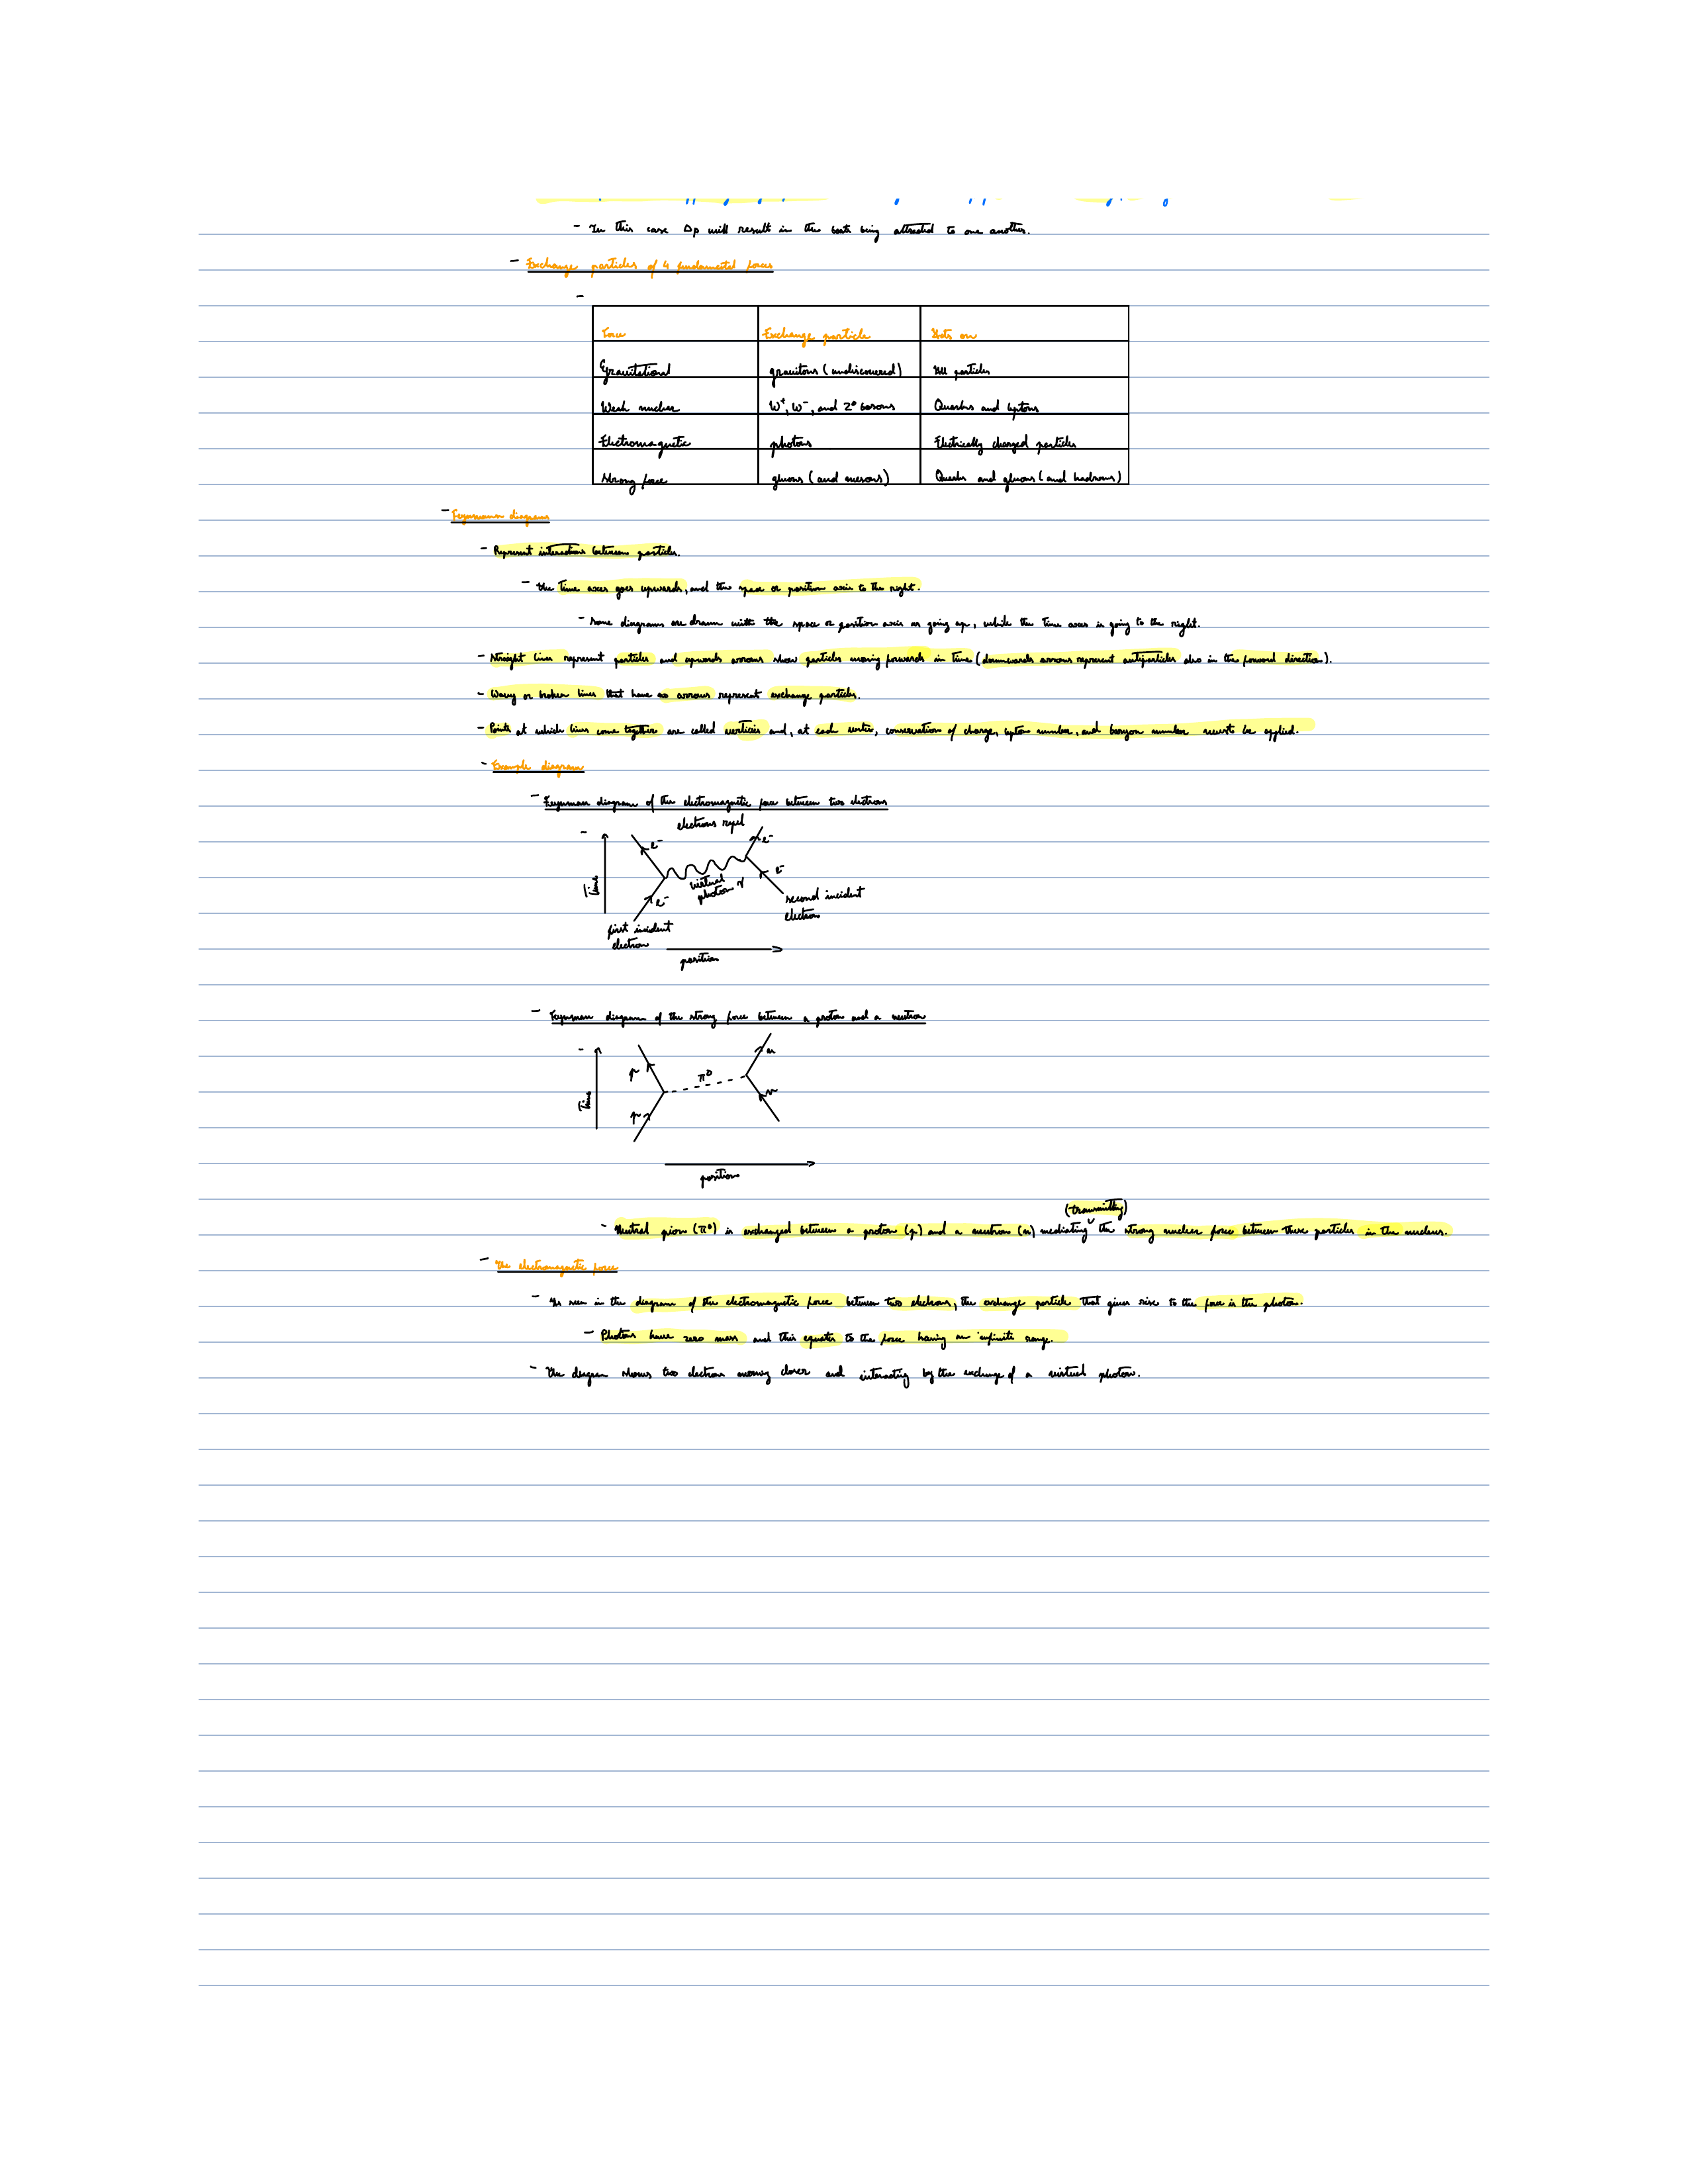 - In this case Δp will result in the boats being attracted to one another.
- Exchange particles of 4 fundamental forces
-
Force Exchange particle Acts on
Gravitational gravitons (undiscovered) All particles
Weak nuclear W⁺, W⁻, and Z⁰ bosons Quarks and leptons
Electromagnetic photons Electrically charged particles
Strong force gluons (and mesons) Quarks and gluons (and hadrons)
- Feynman diagrams
- Represent interactions between particles.
- The time axes goes upwards, and the space or position axis to the right.
- Some diagrams are drawn with the space or position axis as going up, while the time axes is going to the right.
- Straight lines represent particles and upwards arrows show particles moving forwards in time (downwards arrows represent antiparticles also in the forward direction).
- Wavy or broken lines that have no arrows represent exchange particles.
- Points at which lines come together are called verticies and, at each vertex, conservation of charge, lepton number, and baryon number must be applied.
- Example diagram
- Feynman diagram of the electromagnetic force between two electrons
electrons repel
-
e⁻ e⁻
Time
virtual photon γ
e⁻ e⁻
second incident electron
first incident electron
position
- Feynman diagram of the strong force between a proton and a neutron
-
p n
π⁰
Time
p n
position
(transmitting)
- Neutral pion (π⁰) is exchanged between a proton (p) and a neutron (n) mediating the strong nuclear force between these particles in the nucleus.
- The electromagnetic force
- As seen in the diagram of the electromagnetic force between two electrons, the exchange particle that gives rise to the force is the photon.
- Photons have zero mass and this equates to the force having an infinite range.
- The diagram shows two electrons moving closer and interacting by the exchange of a virtual photon.